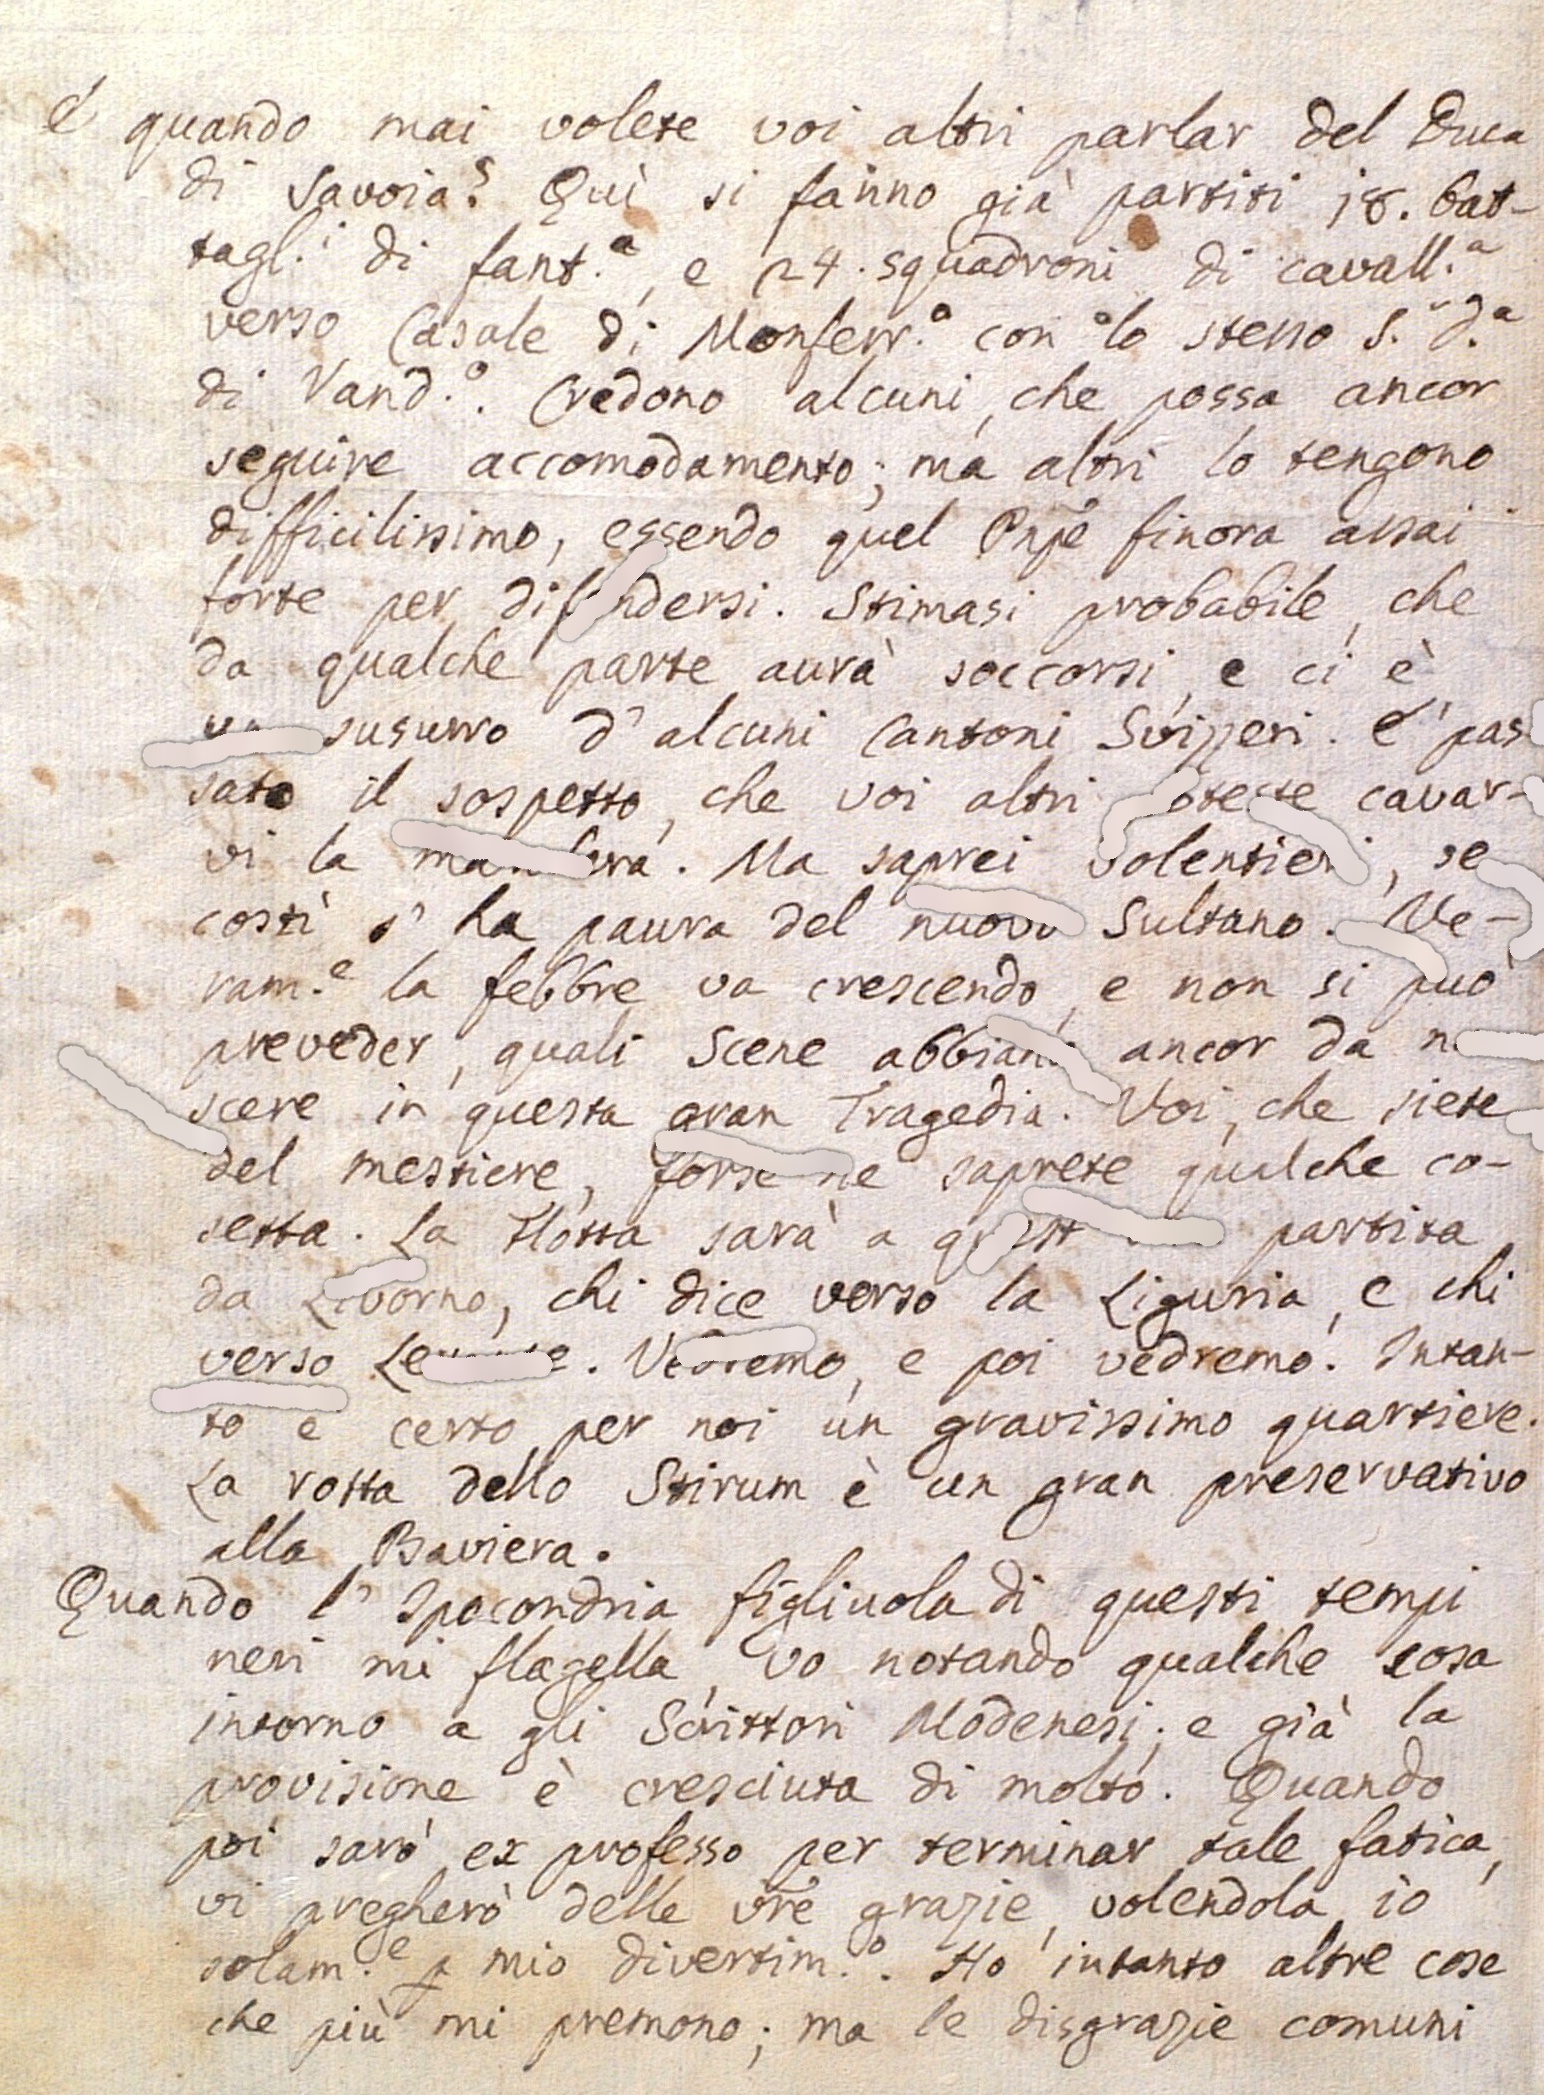 E quando mai volete voi altri parlar del Duca
di Savoia? Quì si fanno già partiti 18. bat-
tagl.i di fant.a, e 24. squadroni di cavall.a
verso Casale di Monferr.o con lo stesso S.r d.a
di Vand.o. Credono alcuni, che possa ancor
seguire accomodamento; ma altri lo tengono
difficilissimo, essendo quel Pnpe finora assai
forte per dif ndersi. Stimasi probabile, che
da qualche parte aurà soccorsi, e ci è
susurro d'alcuni Cantoni Svizzeri. E' pas
sato il sospetto, che voi altri cavar-
vi la . Ma saprei volentieri, se
costì s'ha paura del nuovo Sultano. Ve-
ram.e la febbre va crescendo, e non si può
preveder, quali Scene abbiano ancor da
scere in questa gran Tragedia. Voi, che siete
del mestiere, forse ne saprete qualche co-
setta. La Flotta sarà a partita
da Livorno, chi dice verso la Liguria, e chi
verso . Vedremo, e poi vedremo. Intan-
to è certo per noi un gravissimo quartiere.
La rotta dello Stirum è un gran preservativo
alla Baviera.
Quando l'Ipocondria figliuola di questi tempi
neri mi flagella, vo notando qualche cosa
intorno a gli Scrittori Modenesi; e già la
provisione è cresciuta di molto. Quando
poi sarò ex professo per terminar tale fatica,
vi pregherò delle vre grazie, volendola io
solam.e p mio divertim.o. Ho intanto altre cose
che più mi premono; ma le disgrazie comuni